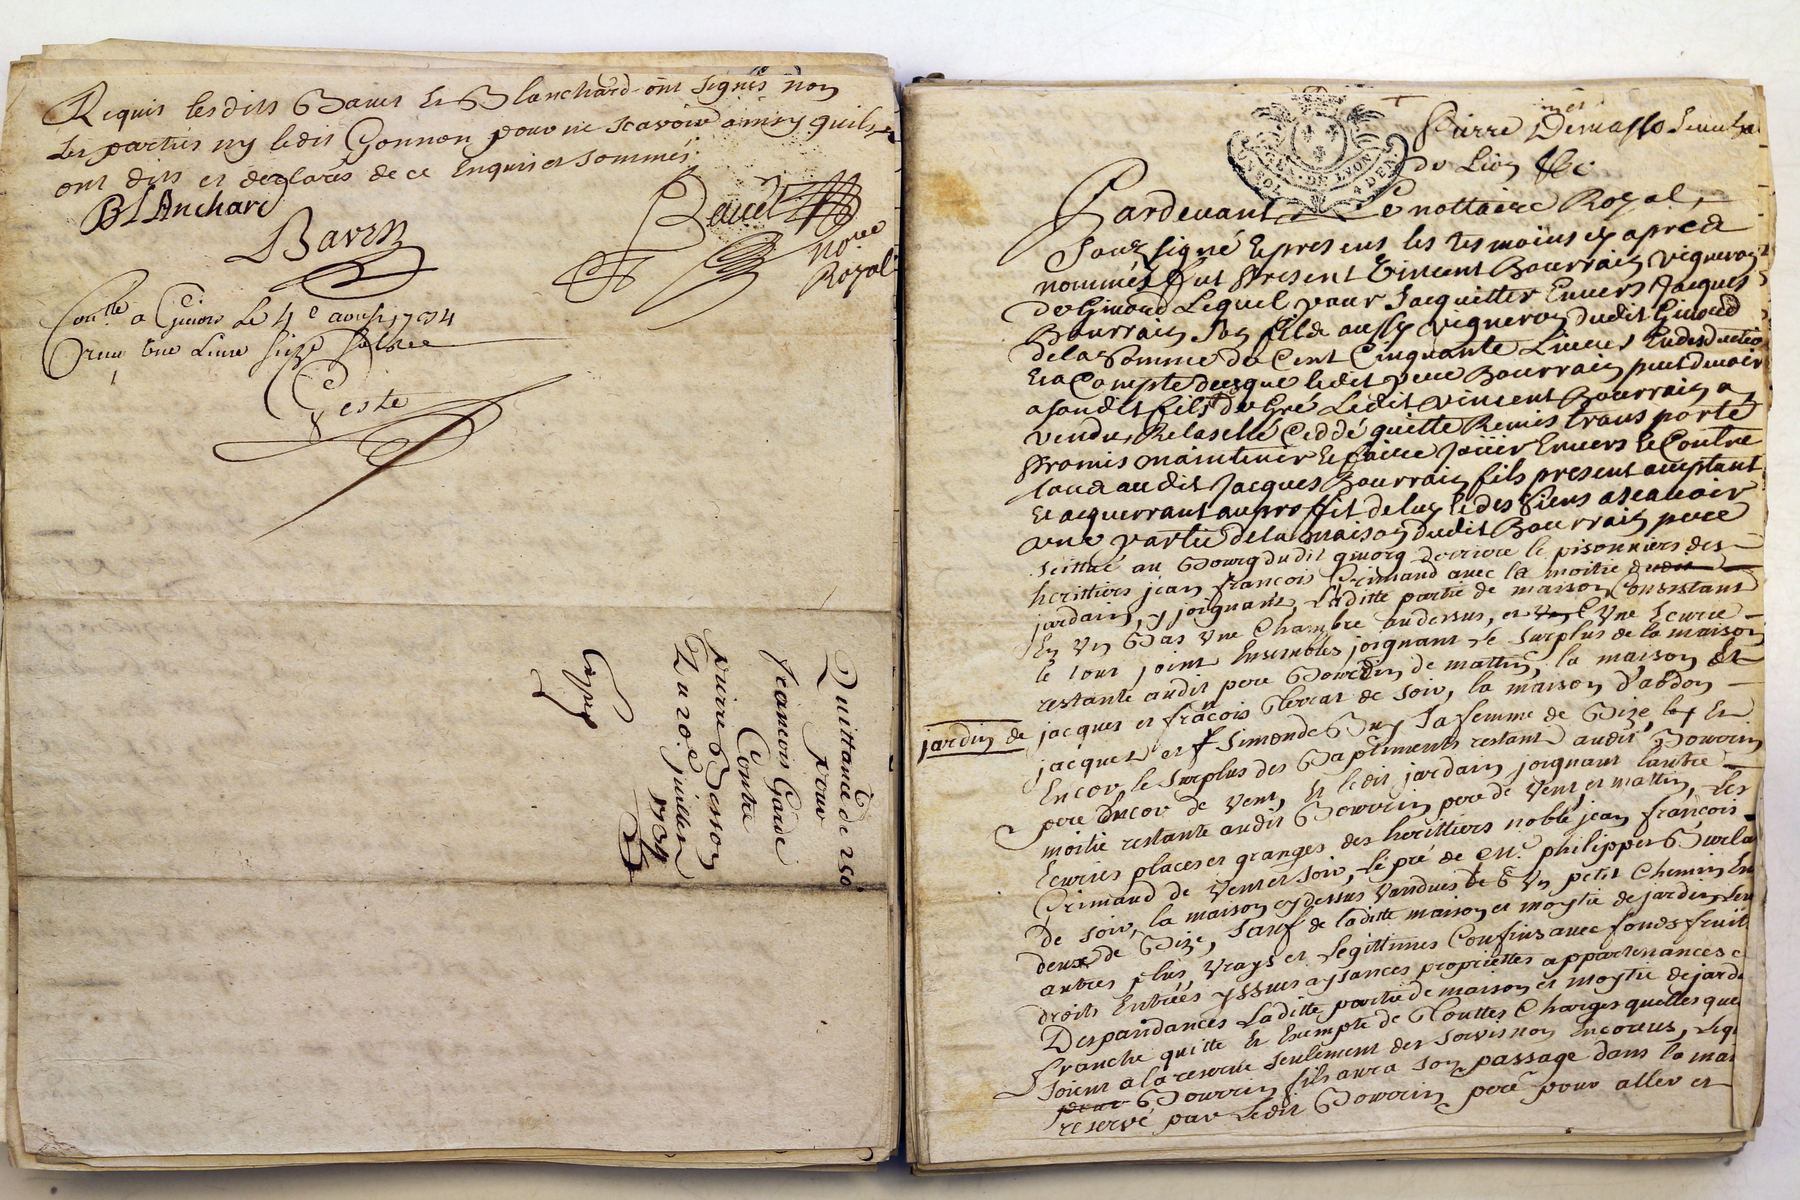 Requis lesdits Baves et Blanchard ont signés non
les parties ny ledit Gonnon pour ne scavoir ainsy quils
ont dits et declarés de ce Enquis et sommés
BlAnchard
Baven
Noue
Royal
Conlle a Givors Le 4e aoust 1734
Recu une Livre seize sols
Geste
Quittance de 250
pour
francois Garde
Contre
pierre Besson
Du 20e juillet
1734
GEN. DE LYON
Pierre
de Lion
Pardevant Le nottaire Royal
Souzsigné Et presens les tesmoins cy apres
nommés fut Present Vincent Bourrain vigneron
de Lequel pour Sacquitter Envers Jacques
Bourrain son fils aussy vigneron dudit
de la somme de Cent Cinquante Livres En desduction
Et a Compte de ce que ledit pere Bourrain peut devoir
a sondit fils de Gré Ledit Vincent Bourrain a
vendu, Relasché Ceddé quitte Remis transporté
Promis maintenir Et faire Jouir Envers Et Contre
tous audit Jacques Bourrain fils present acceptant
Et acquerrant au proffit de luy Et des siens a scavoir
une partie de la maison dudit Bourrain pere
scittué au Bourg dudit derriere le pisonniers des
herittiers jean francois Grimaud avec la moitié
jardain, y joignant, Laditte partie de maison Consistant
En Un Bas Une Chambre au dessus, et Une Ecurie
le tout joint Ensembles joignant le surplus de la maison
restante audit pere Bourrin de mattin, la maison de
jacques et francois de soir, la maison d'abdon
jardin de
jacques et Simonde Buy sa femme de Bize, Et
Encor, le surplus des Baptiments restant audit Bourrin
pere Encor de vent, Et ledit jardain joignant l'autre
moitié restante audit Bourrin pere de vent, et mattin, Les
Ecuries places et granges des herittiers noble jean francois
Grimaud de vent et soir, le pré de Mr. philippes
de soir, la maison cy dessus vendues Un petit Chemin En
deux de Bize, sauf de laditte maison et moytié de jardin
autres plus vrays et legittimes Confins avec fonds fruit
droits Entrées yssues aysances proprietes appartenances
Despandances Laditte partie de maison et moytié de jardi
franche quitte Et Exempte de touttes Charges quelles que
soient a la reserve seulement des servis non Encourus,
Bourrin fils aura son passage dans la
reservé par Ledit Bourrin pere pour aller et